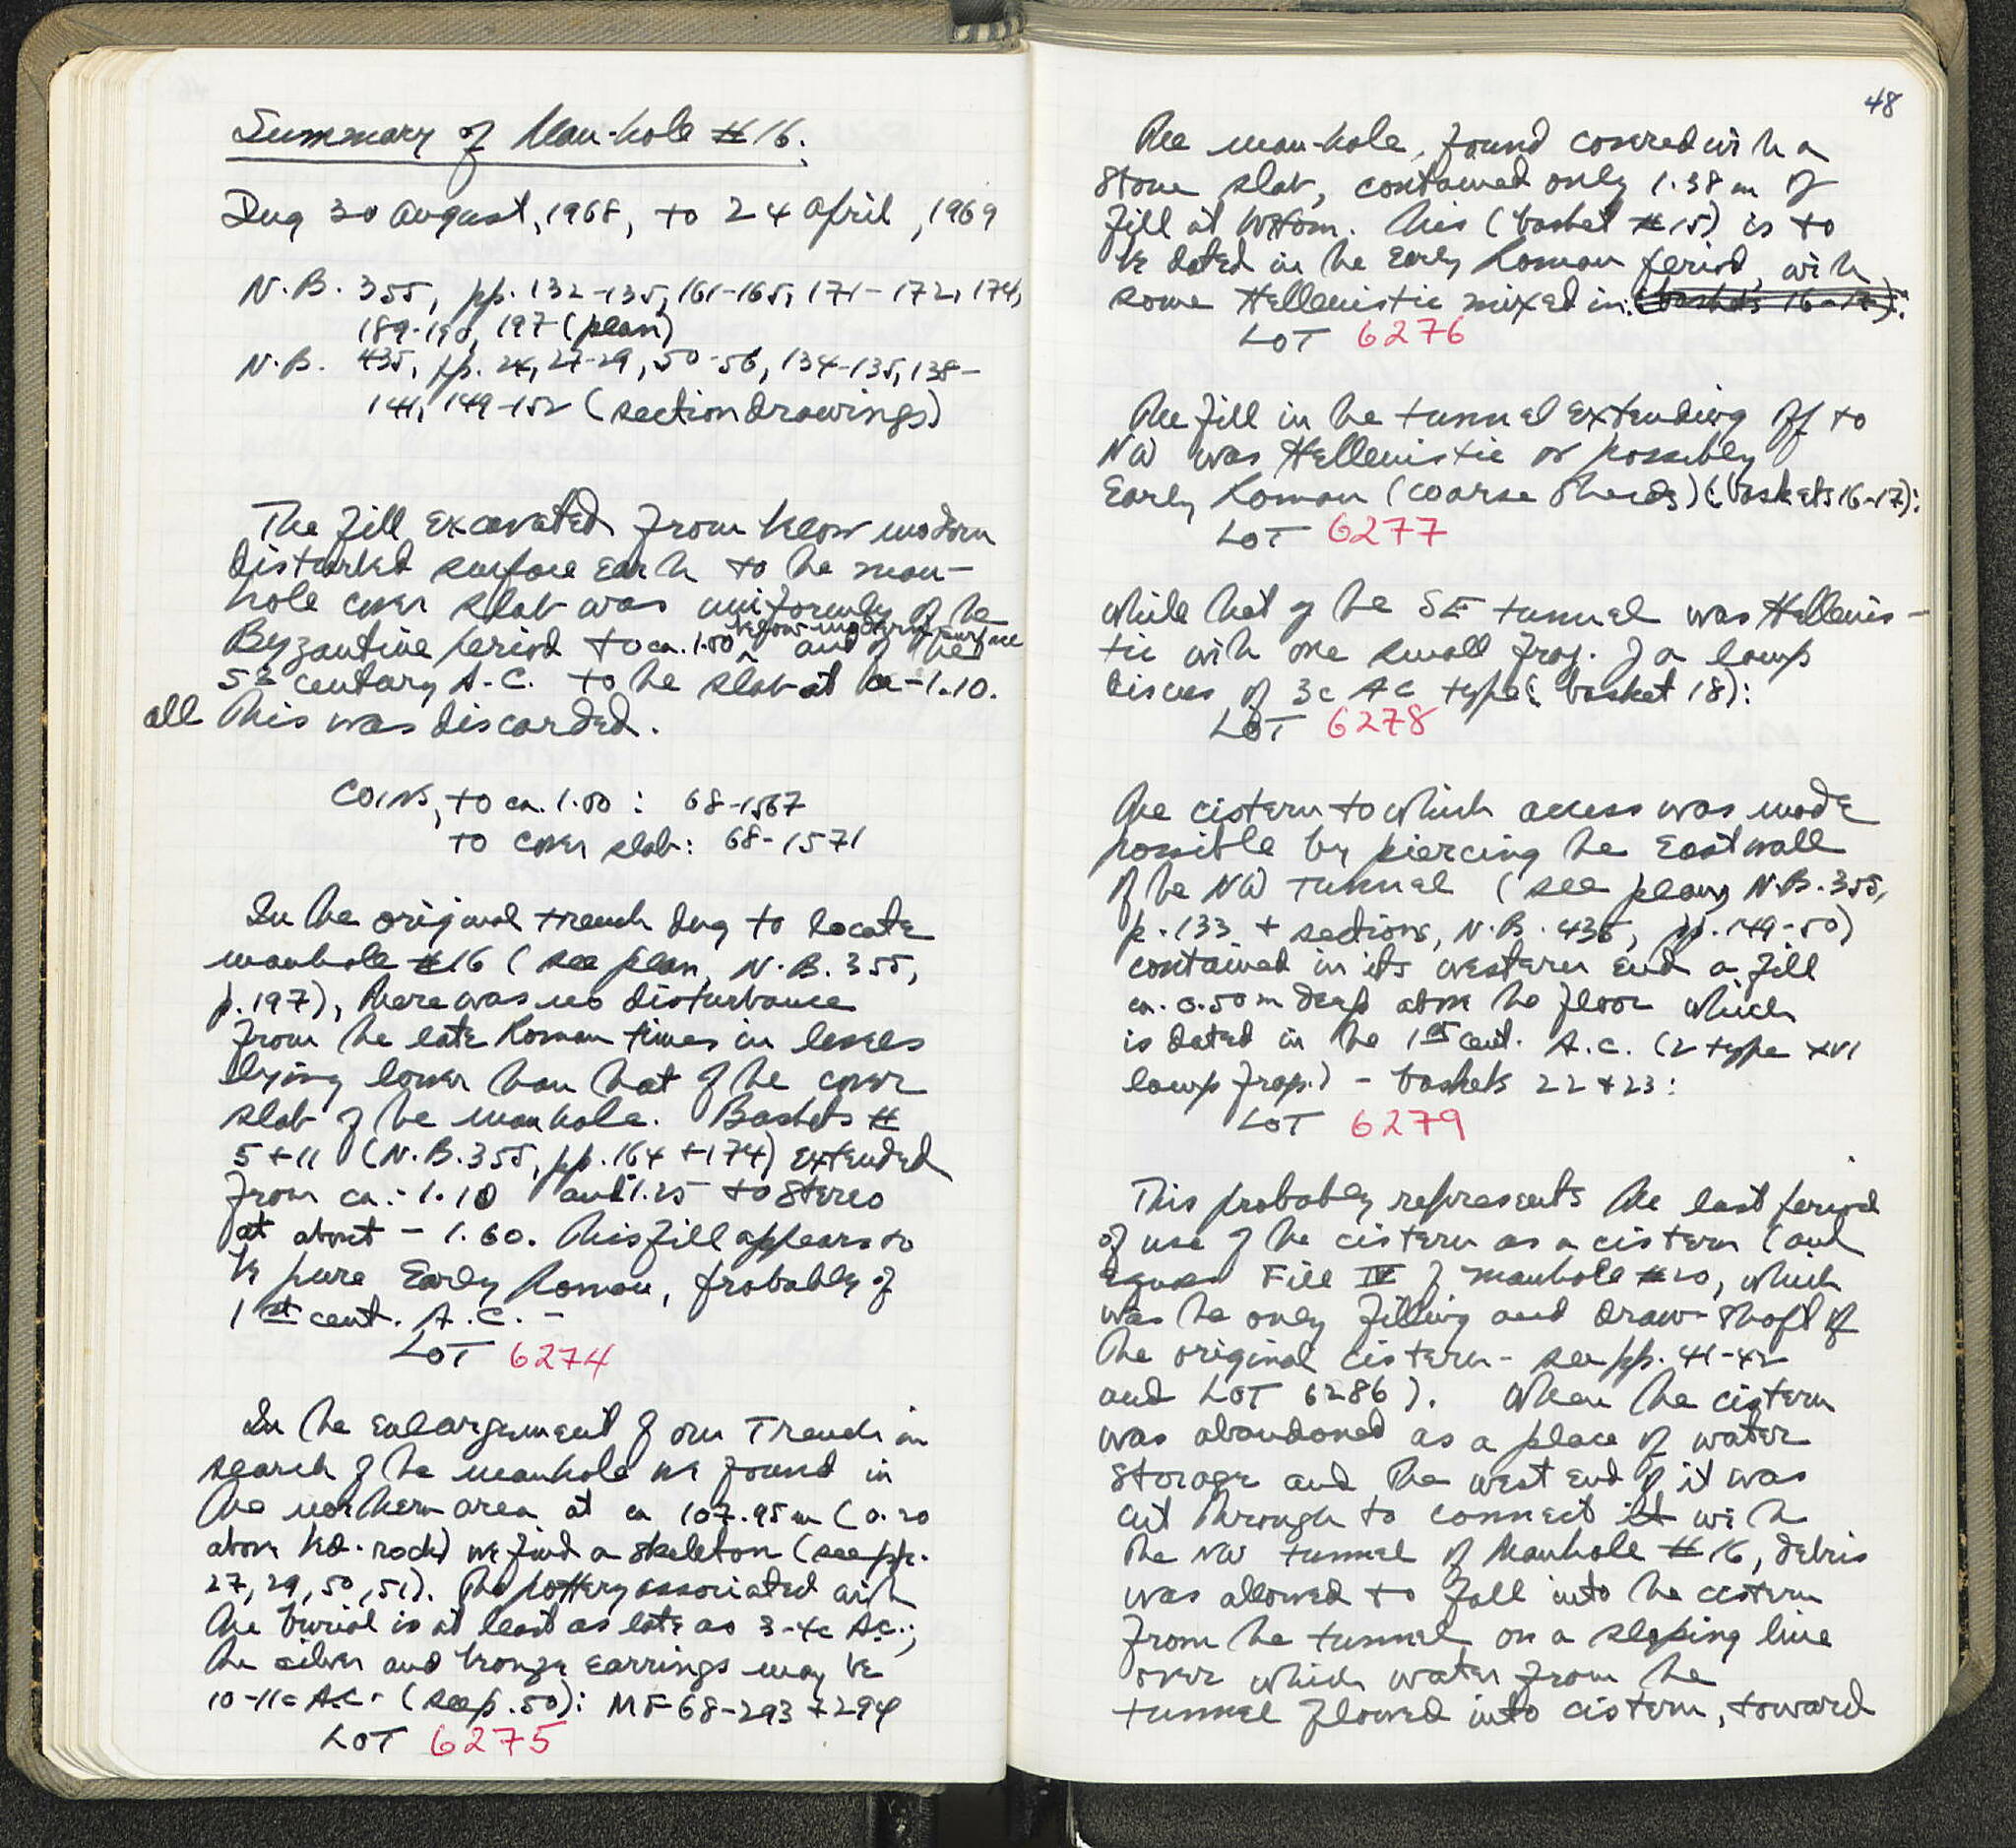 Summary of Man-hole #16.
Dug 30 August, 1968, to 24 April, 1969
N.B. 355, pp. 132-135, 161-165, 171-172, 174,
189-190, 197 (plan)
N.B. 435, pp. 24, 27-29, 50-56, 134-135, 138-
141, 149-152 (section drawings)
The fill excavated from below modern
disturbed surface earth to the man-
hole cover slab was uniformly of the
Byzantine period to ca. 1.00 below modern surface and of the
5th century A.C. to the slab at ca -1.10.
all This was discarded.
Coins, to ca. 1.00: 68-1567
to cover slab: 68-1571
In the original trench dug to locate
manhole #16 (see plan, N.B. 355,
p. 197), there was no disturbance
from the late Roman times in levels
lying lower than that of the cover
slab of the manhole. Baskets #
5+11 (N.B. 355, pp. 164 + 174) extended
from ca. -1.10 and 1.25 to stereo
at about - 1.60. This fill appears to
be pure Early Roman, probably of
1st cent. A.C. -
LOT 6274
In the enlargement of our Trench in
search of the manhole we found in
the northern area at ca 107.95 m (0.20
above bed-rock) we find a skeleton (see pp.
27, 29, 50, 51). The pottery associated with
the burial is at least as late as 3-4c A.C.;
the silver and bronze earrings may be
10-11c A.C. (see p. 50): MF 68-293 + 294
LOT 6275
48
The man-hole, found covered with a
stone slab, contained only 1.38 m of
fill at bottom. This (basket #15) is to
be dated in the Early Roman period, with
some Hellenistic mixed in: (baskets 16-17):
LOT 6276
The fill in the tunnel extending off to
NW was Hellenistic or possibly
Early Roman (coarse sherds) (baskets 16-17):
LOT 6277
while that of the SE tunnel was Hellenis-
tic with one small frag. of a lamp
discus of 3c AC type (basket 18):
LOT 6278
The cistern to which access was made
possible by piercing the East wall
of the NW tunnel (see plan, N.B. 355,
p. 133 + sections, N.B. 435, pp. 149-50)
contained in its western end a fill
ca. 0.50 m deep above the floor which
is dated in the 1st cent. A.C. (2 type XVI
lamp frags.) - baskets 22+23:
LOT 6279
This probably represents the last period
of use of the cistern as a cistern (and
equals Fill IV of manhole #20, which
was the only filling and draw-shaft of
the original cistern - see pp. 41-42
and LOT 6286). When the cistern
was abandoned as a place of water
storage and the west end of it was
cut through to connect it with
the NW tunnel of Manhole #16, debris
was allowed to fall into the cistern
from the tunnel on a sloping line
over which water from the
tunnel flowed into cistern, toward